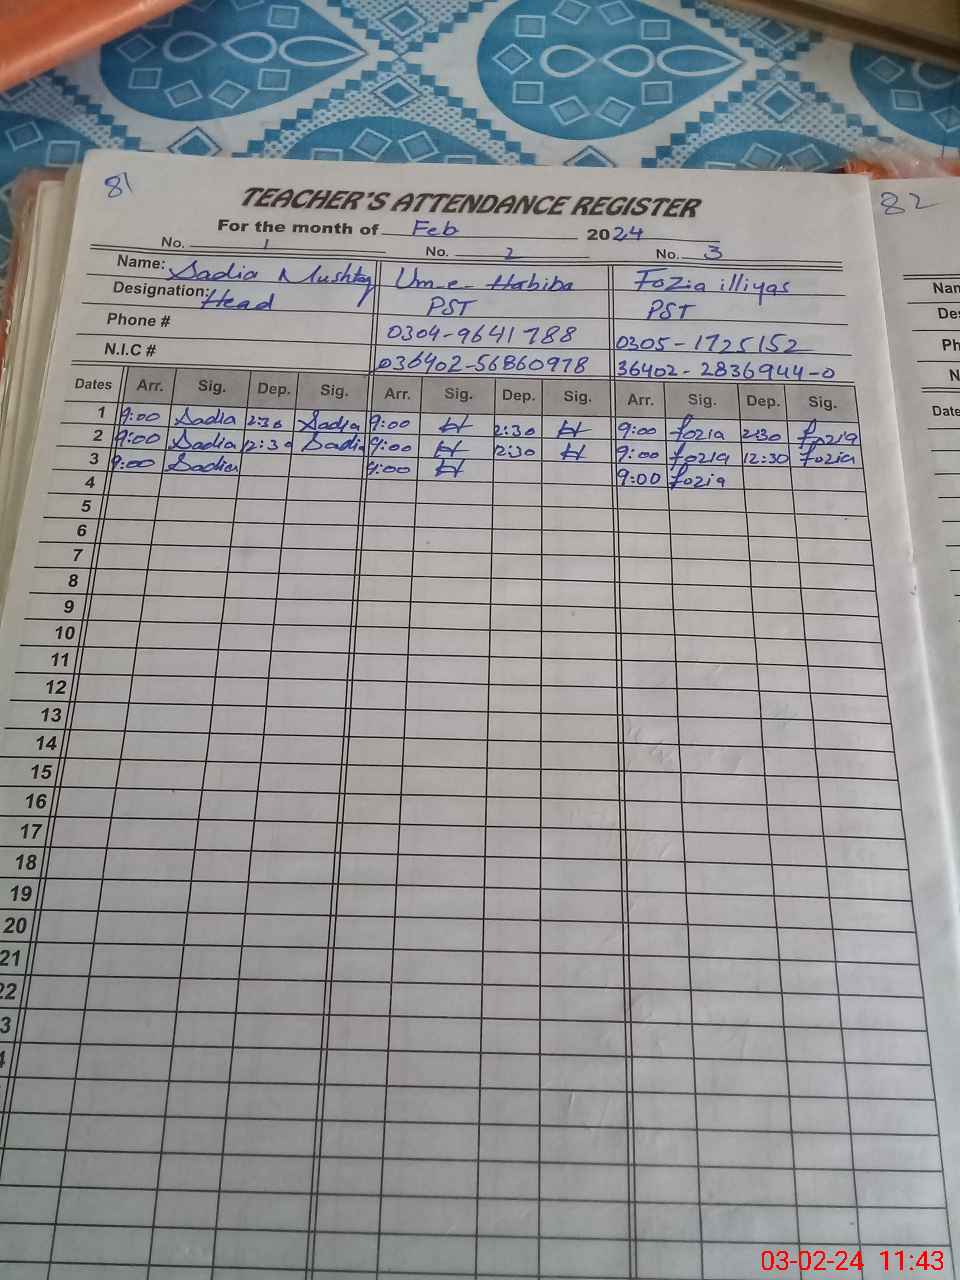 81
82
TEACHER'S ATTENDANCE REGISTER
For the month of Feb 2024
No. 1 No. 2 No. 3
Name: Sadia Mushtaq Um-e-Habiba Fozia illiyas
Designation: Head PST PST
Phone # 0304-9641788 0305-1725152
N.I.C # 036402-56860978 36402-2836944-0
Dates Arr. Sig. Dep. Sig. Arr. Sig. Dep. Sig. Arr. Sig. Dep. Sig.
1 9:00 Sadia 2:30 Sadia 9:00 H 2:30 H 9:00 fozia 2:30 fozia
2 9:00 Sadia 12:30 Sadia 9:00 H 12:30 H 9:00 fozia 12:30 fozia
3 9:00 Sadia 9:00 H 9:00 fozia
4
5
6
7
8
9
10
11
12
13
14
15
16
17
18
19
20
21
22
3
Nam
Des
Ph
N
Date
03-02-24 11:43